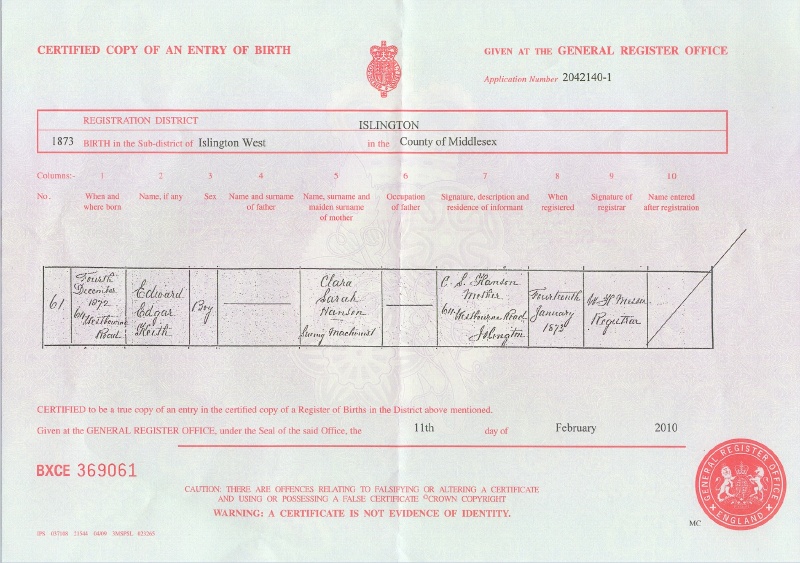 CERTIFIED COPY OF AN ENTRY OF BIRTH
GIVEN AT THE GENERAL REGISTER OFFICE
Application Number 2042140-1
REGISTRATION DISTRICT
ISLINGTON
1873 BIRTH in the Sub-district of Islington West in the County of Middlesex
Columns:- 1 2 3 4 5 6 7 8 9 10
No. When and where born Name, if any Sex Name and surname of father Name, surname and maiden surname of mother Occupation of father Signature, description and residence of informant When registered Signature of registrar Name entered after registration
61
Fourth
December
1872
64 Westbourne
Road
Edward
Edgar
Keith
Boy
Clara
Sarah
Hanson
Machinist
C. S. Hanson
Mother
64 Westbourne Road
Islington
Fourteenth
January
1873
Registrar
CERTIFIED to be a true copy of an entry in the certified copy of a Register of Births in the District above mentioned.
Given at the GENERAL REGISTER OFFICE, under the Seal of the said Office, the 11th day of February 2010
BXCE 369061
CAUTION: THERE ARE OFFENCES RELATING TO FALSIFYING OR ALTERING A CERTIFICATE
AND USING OR POSSESSING A FALSE CERTIFICATE ©CROWN COPYRIGHT
WARNING: A CERTIFICATE IS NOT EVIDENCE OF IDENTITY.
GENERAL REGISTER OFFICE
ENGLAND
MC